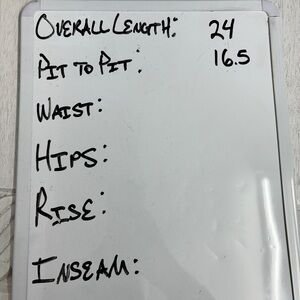 OVERALL LENGTH: 24
PIT TO PIT: 16.5
WAIST:
HIPS:
RISE:
INSEAM: